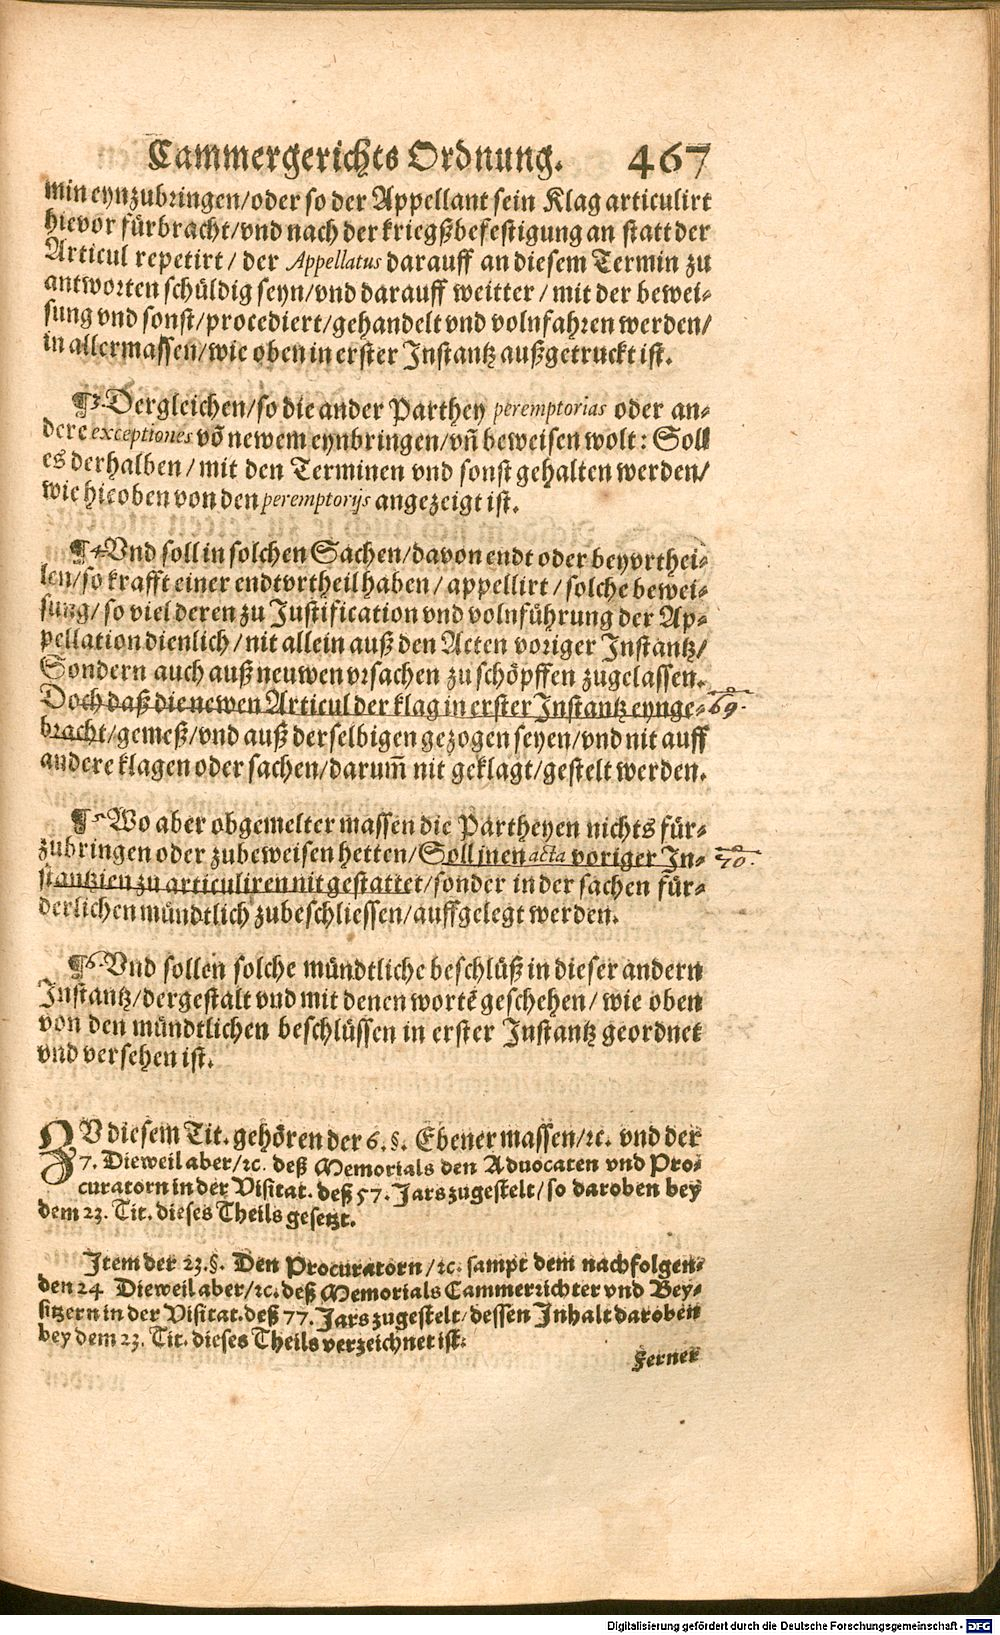 Cammergerichts Ordnung. 467
min eynzubringen/oder so der Appellant sein Klag articulirt
hievor fürbracht/vnd nach der kriegßbefestigung an statt der
Articul repetirt/ der Appellatus darauff an diesem Termin zu
antworten schüldig seyn/vnd darauff weitter/mit der bewei-
sung vnd sonst/procediert/gehandelt vnd volnfahren werden/
in allermassen/wie oben in erster Instantz außgetruckt ist.
¶3. Dergleichen/so die ander Parthey peremptorias oder an-
dere exceptiones võ newem eynbringen/vñ beweisen wolt: Soll
es derhalben/mit den Terminen vnd sonst gehalten werden/
wie hieoben von den peremptorijs angezeigt ist.
¶4. Vnd soll in solchen Sachen/davon endt oder beyvrthei-
len/so krafft einer endtvrtheil haben/appellirt/solche bewei-
sung/so viel deren zu Justification vnd volnführung der Ap-
pellation dienlich/nit allein auß den Acten voriger Instantz/
Sondern auch auß neuwen vrsachen zu schöpffen zugelassen.
Doch daß die newen Articul der klag in erster Instantz eynge- 69.
bracht/gemeß/vnd auß derselbigen gezogen seyen/vnd nit auff
andere klagen oder sachen/darum̃ nit geklagt/gestelt werden.
¶5. Wo aber obgemelter massen die Partheyen nichts für-
zubringen oder zubeweisen hetten/Soll jnen acta voriger In- 70.
stantzien zu articuliren nit gestattet/sonder in der sachen für-
derlichen mündtlich zubeschliessen/auffgelegt werden.
¶6. Vnd sollen solche mündtliche beschlüß in dieser andern
Instantz/dergestalt vnd mit denen wortẽ geschehen/wie oben
von den mündtlichen beschlüssen in erster Instantz geordnet
vnd versehen ist.
ZV diesem Tit. gehören der 6.§. Ebener massen/ꝛc. vnd der
7. Dieweil aber/ꝛc. deß Memorials den Advocaten vnd Pro-
curatorn in der Visitat. deß 57. Jars zugestelt/so daroben bey
dem 23. Tit. dieses Theils gesetzt.
Item der 23.§. Den Procuratorn/ꝛc. sampt dem nachfolgen-
den 24 Dieweil aber/ꝛc. deß Memorials Cammerrichter vnd Bey-
sitzern in der Visitat. deß 77. Jars zugestelt/dessen Inhalt daroben
bey dem 23. Tit. dieses Theils verzeichnet ist.
Ferner
Digitalisierung gefördert durch die Deutsche Forschungsgemeinschaft - DFG